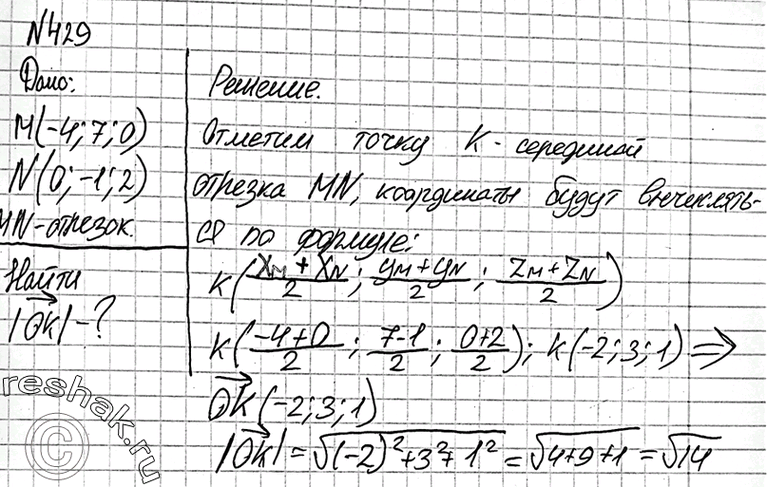 N429
Дано:
M(-4; 7; 0)
N(0; -1; 2)
MN-отрезок.
Найти
|OK| - ?
Решение.
Отметим точку K - серединой
отрезка MN, координаты будут вычеслять-
ся по формуле:
K((x_M + x_N)/2; (y_M + y_N)/2; (z_M + z_N)/2)
K((-4+0)/2; (7-1)/2; (0+2)/2); K(-2; 3; 1) ⇒
OK(-2; 3; 1)
|OK| = √((-2)² + 3² + 1²) = √(4+9+1) = √14
reshak.ru
©